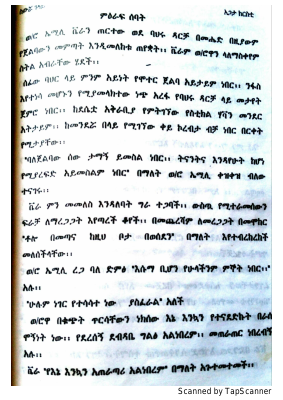 አጋታ ክርስቲ
ምዕራፍ ሰባት
ወ/ሮ ኤሚሊ ቬራን ጠርተው ወደ ባህሩ ዳርቻ በመሔድ በዚያውም
የጀልባውን መምጣት እንዲመለከቱ ጠየቋት።  ቬራም ወ/ሮዋን ላለማስቀየም
ስትል አብራቸው ሄደች።
ሰፊው ባህር ላይ ምንም አይነት የሞተር ጀልባ አይታይም ነበር።  ንፋስ
እየተነሳ መሆኑን የሚያመለክተው ነጭ አረፋ የባህሩ ዳርቻ ላይ መታየት
ጀምሮ ነበር።  ከደሴቷ አቅራቢያ የምትገኘው የስቲክል ሃቨን መንደር
አትታይም።  ከመንደሯ በላይ የሚገኘው ቀይ ኮረብታ ብቻ ነበር በርቀት
የሚታያቸው።
"ባለጀልባው ሰው ታማኝ ይመስል ነበር።  ትናንትና እንዳየሁት ከሆነ
የሚያረፍድ አይመስልም ነበር"  በማለት ወ/ሮ ኤሚሊ ቀዝቀዝ ብለው
ተናገሩ።
ቬራ ምን መመለስ እንዳለባት ግራ ተጋባች።  ውስጧ የሚተራመሰውን
ፍራቻ ለማረጋጋት እየጣረች ቆየች።  በመጨረሻም ለመረጋጋት በመሞከር
"ቶሎ በመጣና ከዚህ ቦታ በወሰደን"  በማለት እየተብረከረከች
መለሰችላቸው።
ወ/ሮ ኤሚሊ ረጋ ባለ ድምፅ "እሱማ ቢሆን የሁላችንም ምኞት ነበር።"
አሉ።
"ሁሉም ነገር የተሳሳተ ነው  ያስፈራል" አለች
ወ/ሮዋ በቁጭት ጥርሳቸውን ነክሰው  እኔ እንኳን የተናደድኩት በራሴ
ሞኝነት ነው።  የደረሰኝ ደብዳቤ ግልፅ አልነበረም።  መጠራጠር ነበረብኝ
አሉ።
ቬራ "የእኔ እንኳን አጠራጣሪ አልነበረም" በማለት አጉተመተመች።
Scanned by TapScanner